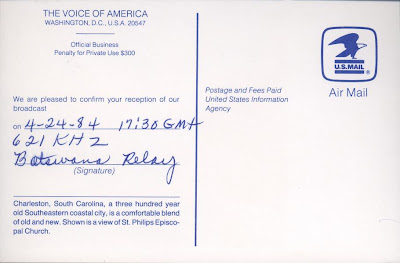 THE VOICE OF AMERICA
WASHINGTON, D.C., U.S.A. 20547
Official Business
Penalty for Private Use $300
We are pleased to confirm your reception of our
broadcast
on 4-24-84 17:30 GMT
621 KHz
Botswana Relay
(Signature)
Charleston, South Carolina, a three hundred year
old Southeastern coastal city, is a comfortable blend
of old and new. Shown is a view of St. Philips Episco-
pal Church.
U.S.MAIL
Air Mail
Postage and Fees Paid
United States Information
Agency